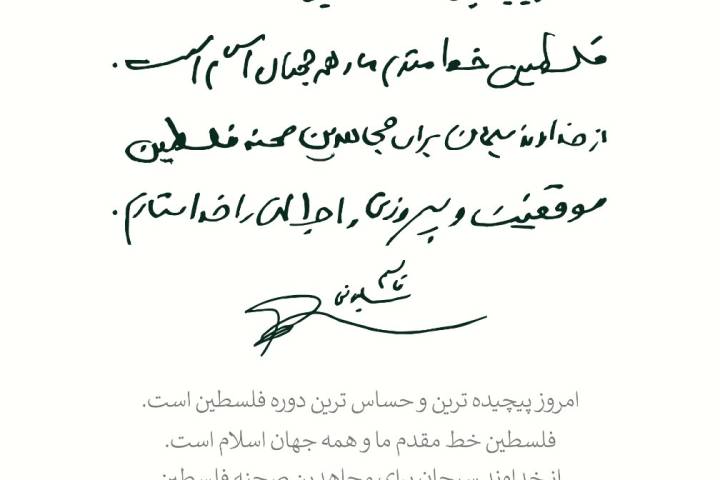 فلسطین خط مقدم ما و همه جهان اسلام است.
از خداوند سبحان برای مجاهدین صحنه فلسطین
موفقیت و پیروزی و اجر الهی را خواستارم.
قاسم سلیمانی
امروز پیچیده ترین و حساس ترین دوره فلسطین است.
فلسطین خط مقدم ما و همه جهان اسلام است.
از خداوند سبحان برای مجاهدین صحنه فلسطین